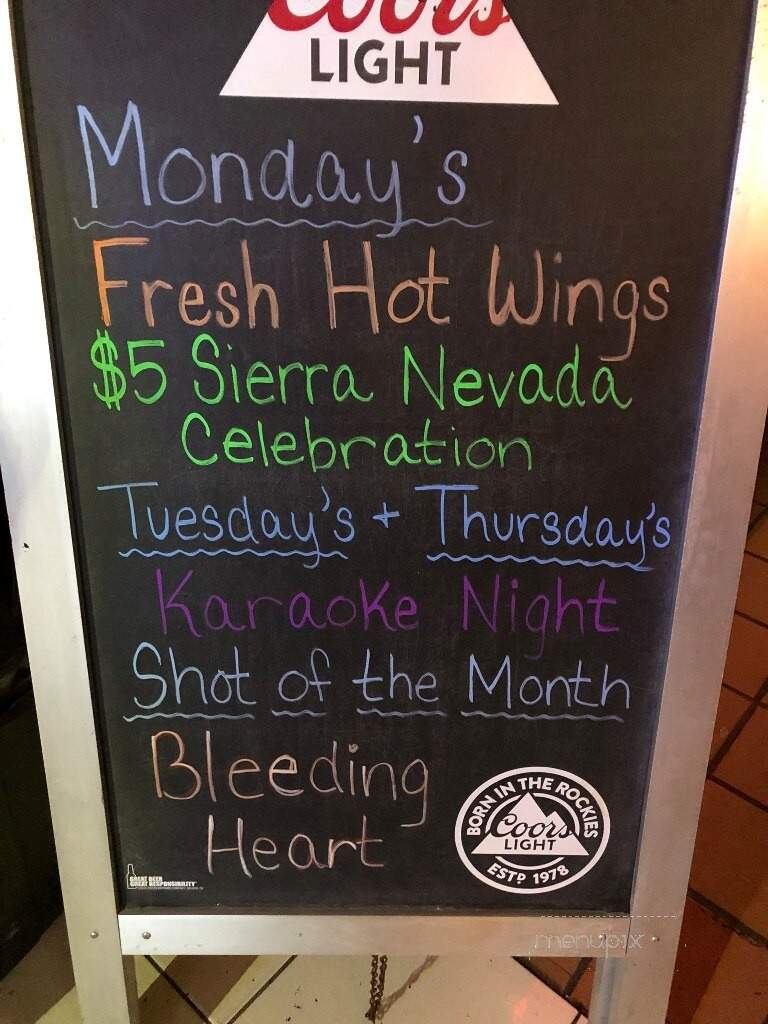 Coors
LIGHT
Monday's
Fresh Hot Wings
$5 Sierra Nevada
Celebration
Tuesday's + Thursday's
Karaoke Night
Shot of the Month
Bleeding
Heart
BORN IN THE ROCKIES
Coors
LIGHT
ESTD 1978
GREAT BEER
GREAT RESPONSIBILITY
menupix